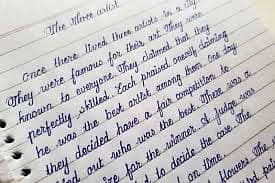 The Three artist
Once there lived three artists in a city
They were famous for their art. They were
known to everyone. They claimed that they
perfectly skilled. Each praised oneself claiming
he was the best among them. One day
they decided have a fair competition to
out who was the best. There was a
for the winner. A judge was
to decide the case. The
on time.
flowers